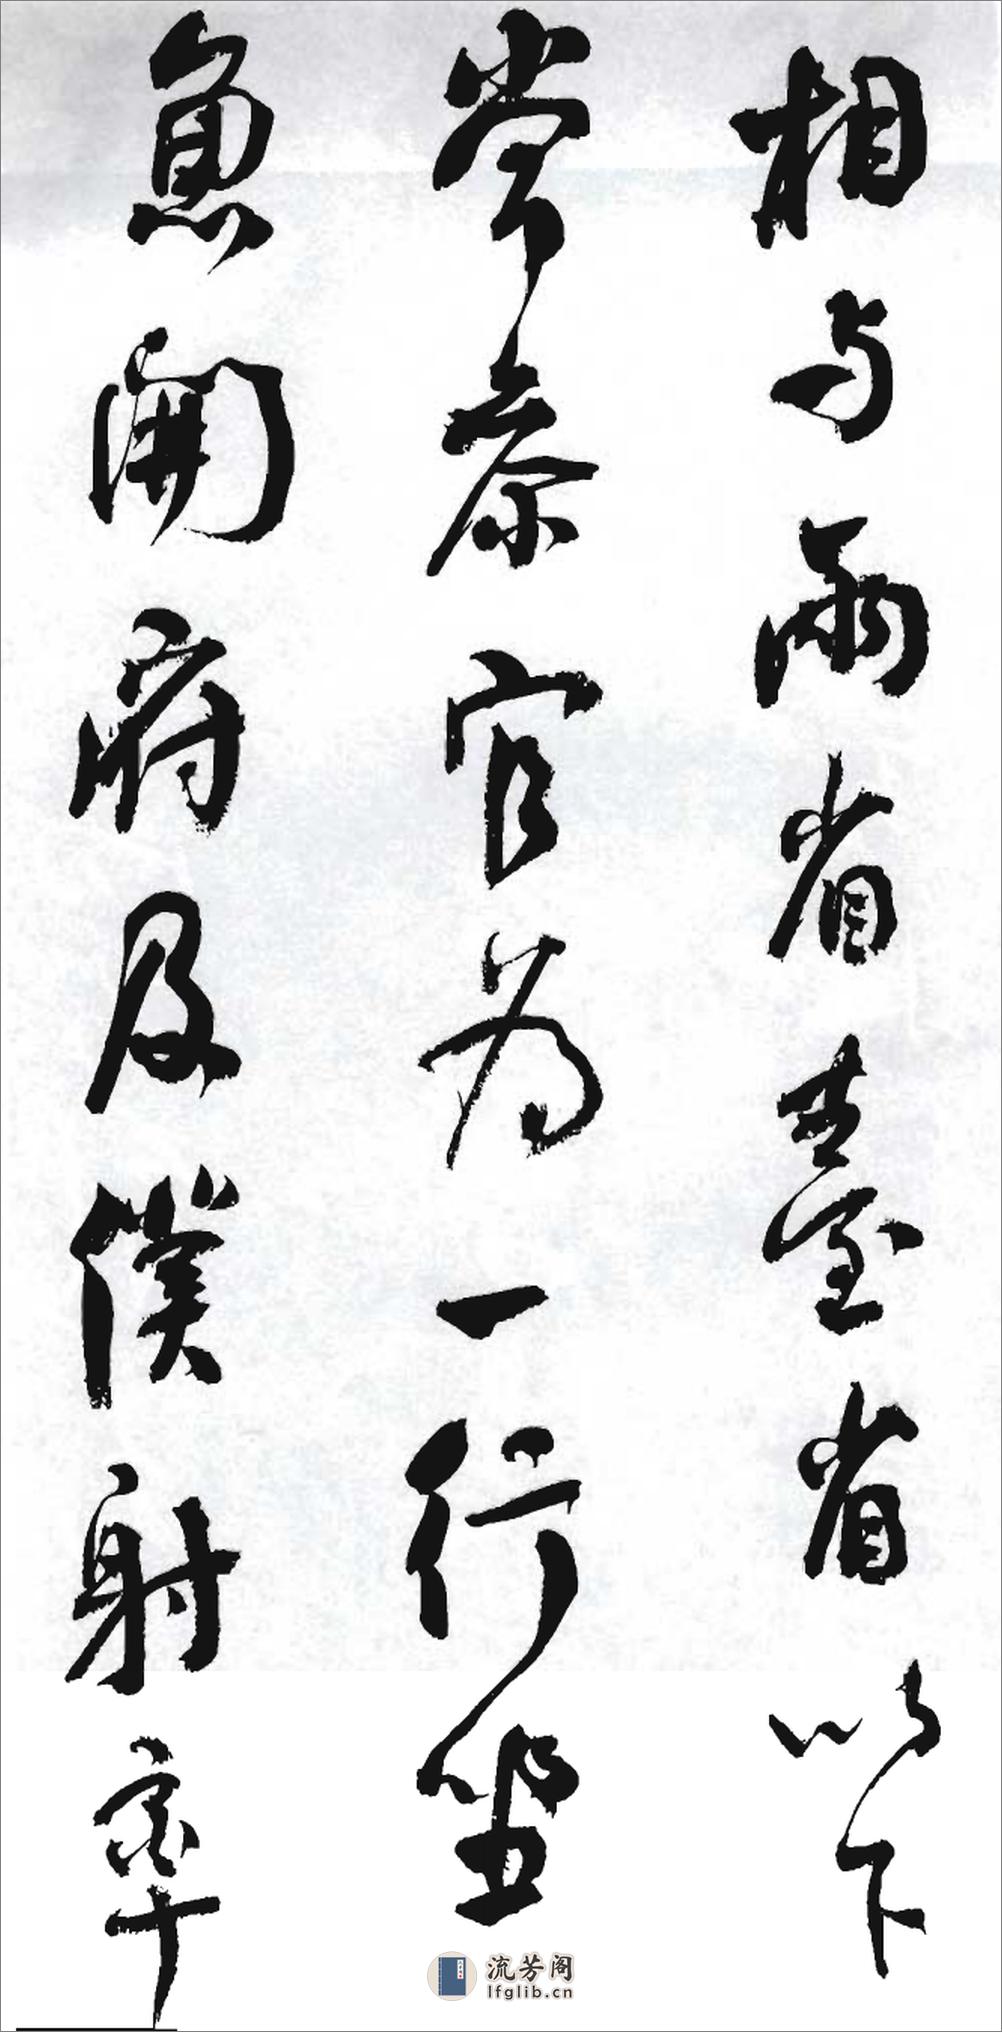 相与兩省臺省以下
常参官为一行坐
魚開府及僕射率
流芳阁
lfglib.cn